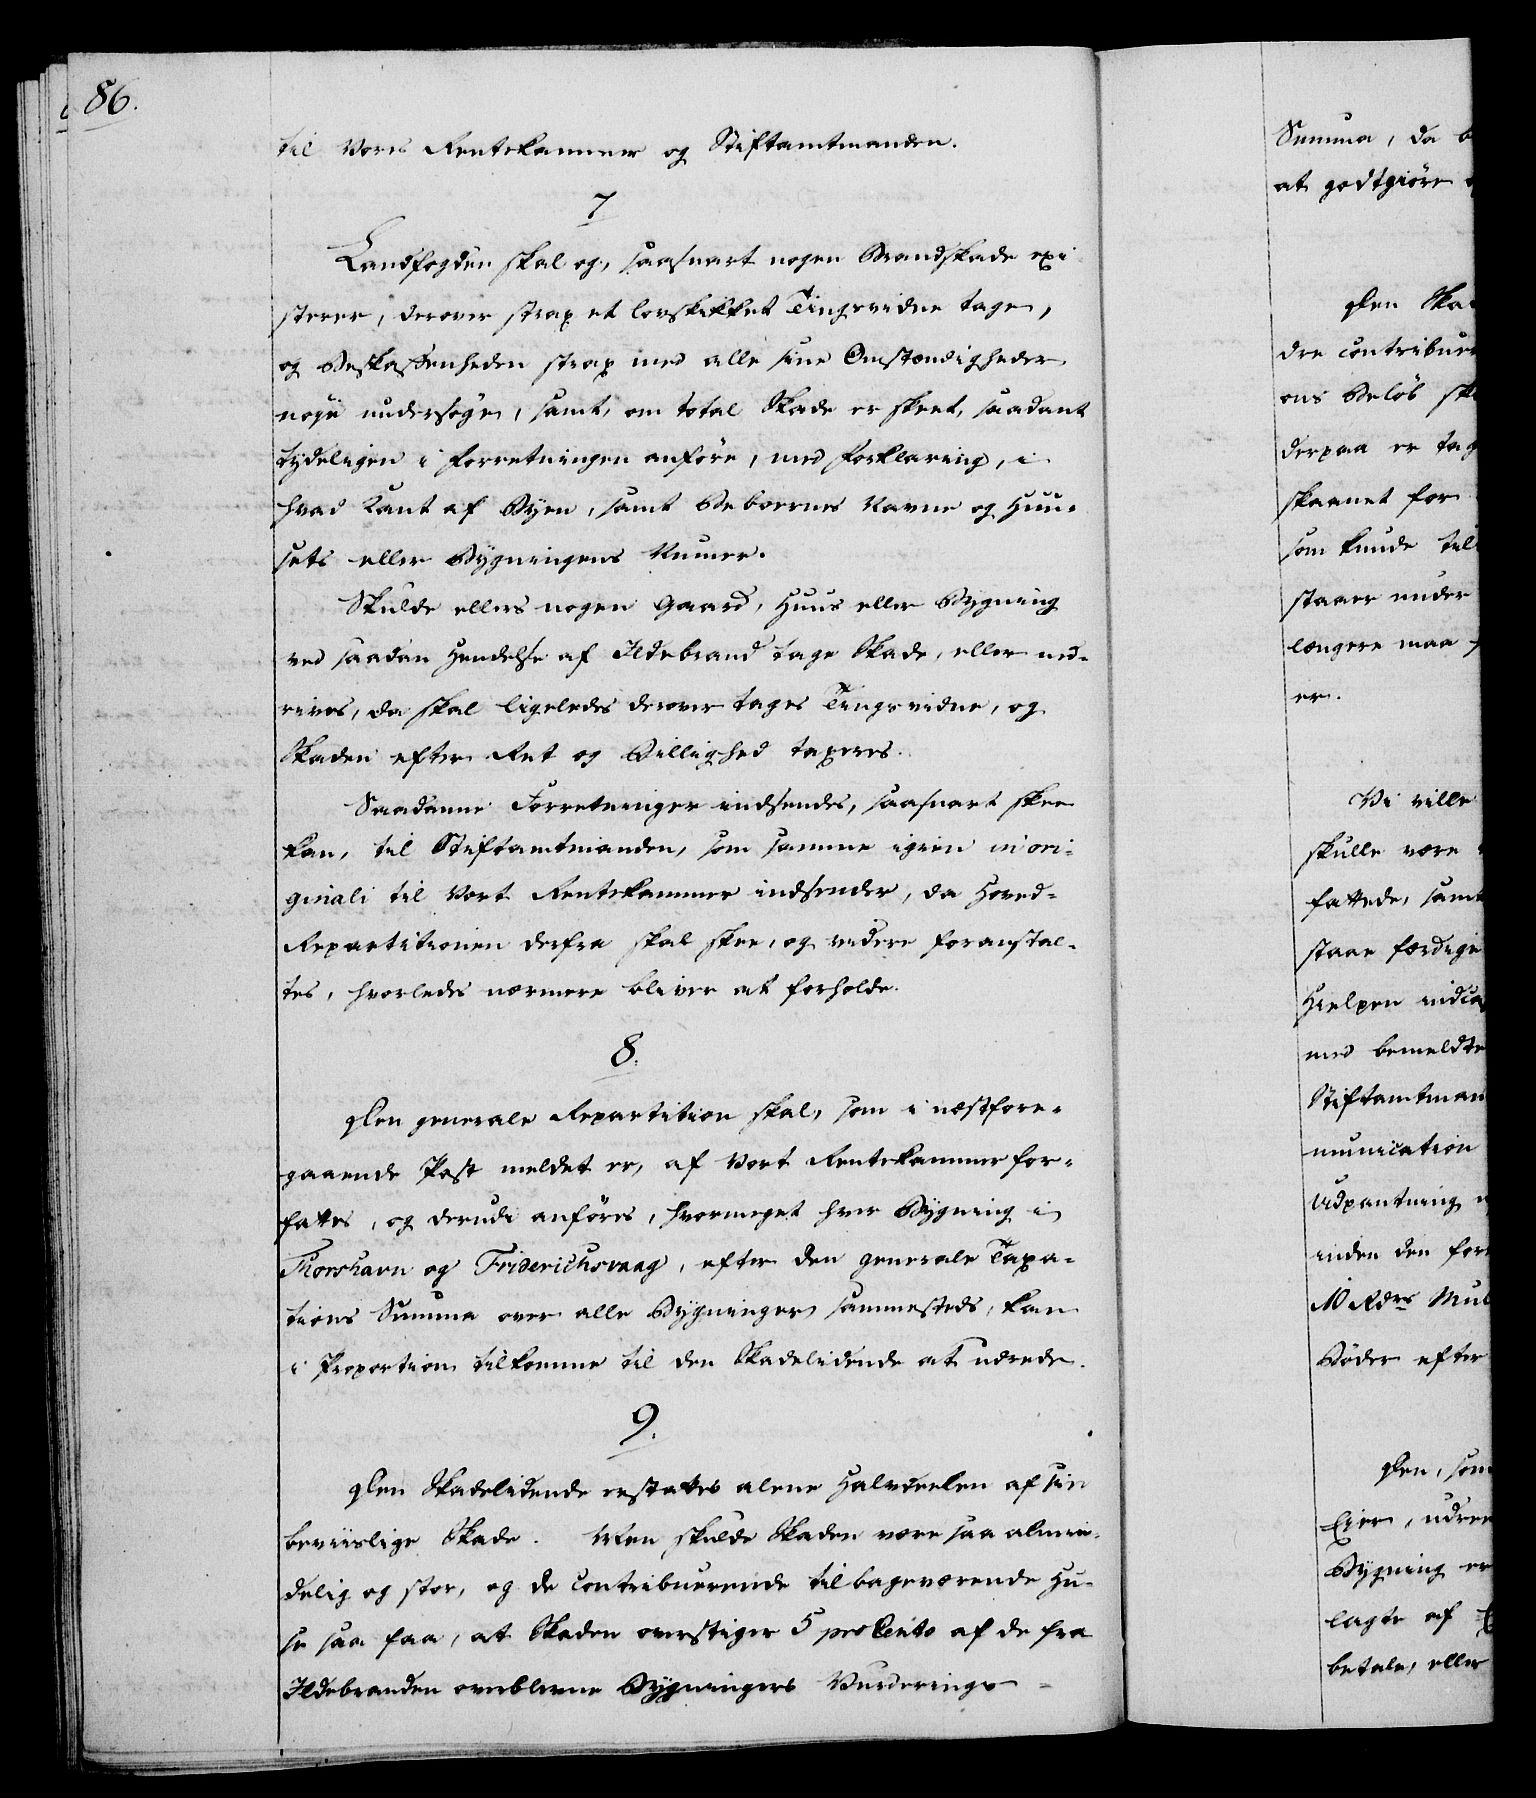 86.
til Vores Rentekammer og Stiftamtmanden.
7
Landfogden skal og, saasnart nogen Brandskade exi
sterer, derover strax et lovskikket Tingsvidne tage,
og Beskaffenheden strax med alle sine Omstændigheder
nøye undersøge, samt, om total Skade er skeet, saadant
tydeligen i Forretningen anføre, med Forklaring, i
hvad Kant af Byen, samt Beboernes Navne og Huu-
sets eller Bygningens Numer.
Skulde ellers nogen Gaard, Huus eller Bygning
ved saadan Hendelse af Ildebrand tage Skade, eller ned-
rives, da skal ligeledes derover tages Tingsvidne, og
Skaden efter Ret og Billighed taxeres.
Saadanne Forretninger indsendes, saasnart skee
kan, til Stiftamtmanden, som samme igien in ori-
ginali til Vort Rentekammer indsender, da Hoved-
Repartitionen derfra skal skee, og videre foranstal-
tes, hvorledes nærmere bliver at forholde.
8.
Den generale Repartition skal, som i næstfore-
gaaende Post meldet er, af Vort Rentekammer for-
fattes, og derudi anføres, hvormeget hver Bygning i
Thorshavn og Friderichsvaag, efter den generale Taxa-
tions Summa over alle Bygninger sammesteds, kan
i Proportion tilkomme til den Skadelidende at udrede.
9.
Den Skadelidende erstattes alene Halvdeelen af sin
beviislige Skade. Men skulde Skaden være saa almin-
delig og stor, og de contribuerende tilbageværende Hu-
se saa faa, at Skaden overstiger 5 pro Cento af de fra
Ildebranden overblevne Bygningers Vurderings-
Summa, da
at godtgiøre
Den Ska
dre contribuer
ens Beløb
derpaa er tag
skaanet for
som kunde
staaer under
længere maa
er.
Vi ville
skulle være
fattede, samt
staae færdige
Hielpen
med bemeldte
Stiftamtman
munication
Udpantning
inden den
10 Rdrs Mul
Bøder efter
Den, som
Eier, udre
Bygning er
lagte af
betale, eller